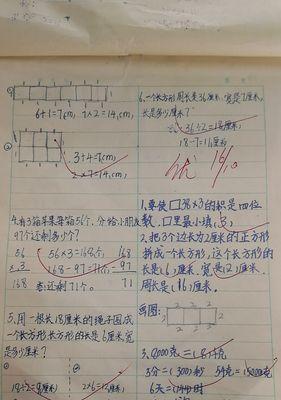 ①
6+1=7(cm) 7×2=14(cm)
②
3+4=7(cm)
2×7=14(cm)
4.有3箱苹果每箱56个,分给小朋友
97个还剩多少个?
56
×3
168
56×3=168个
168-97=71个
168
97
71
答:还剩71个。
5.用一根长18厘米的绳子围成
一个长方形长方形的长是6厘米,宽
是多少厘米?
① ②
18÷2=9(厘米) 2×6=12(厘米)
6.一个长方形周长是36厘米,宽是7厘米,
长是多少厘米?
36÷2=18(厘米)
18-7=11(厘米)
优
1.要使□38×3的积是四位
数,□里最小填(3)
2.把3个边长为2厘米的正方形
拼成一个长方形,这个长方形的
长是(6)厘米,宽是(2)厘米,
周长是(16)厘米。
画图:
2 2 2
2 2
2 2 2
3.8000克=(8)千克
3分=(300)秒
6天=(144)时